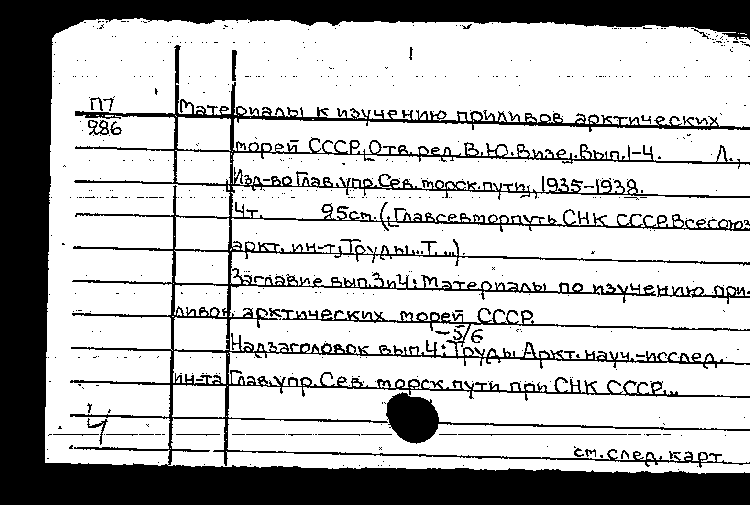 П7
286
Материалы к изучению приливов арктических
морей СССР. Отв. ред. В.Ю. Визе. Вып. 1-4. Л.,
Изд-во Глав. упр. Сев. морск. пути, 1935-1938.
4 т. 25 см. (Главсевморпуть СНК СССР. Всесоюз
аркт. ин-т, Труды... Т. ...).
Заглавие вып. 3 и 4: Материалы по изучению при-
ливов арктических морей СССР.
-5/6
Надзаголовок вып. 4: Труды Аркт. науч.-исслед.
ин-та Глав. упр. Сев. морск. пути при СНК СССР...
4
см. след. карт.